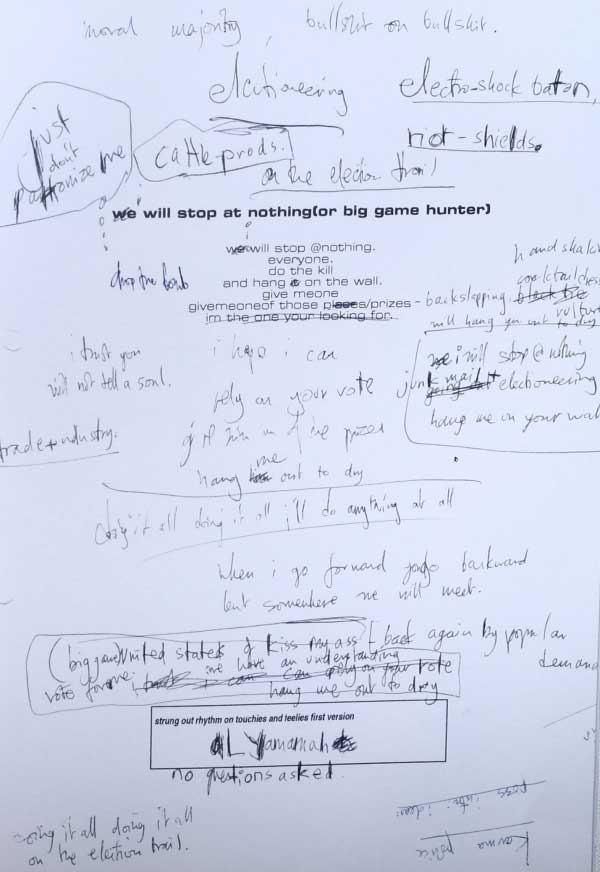 moral majority, bullshit on bullshit.
electioneering
electro-shock baton,
riot-shields.
just
don't
patronize me
cattle prods.
on the election trail
we will stop at nothing(or big game hunter)
we will stop @nothing.
everyone.
do the kill
and hang it on the wall.
give meone
givemeoneof those pieces/prizes - backslapping black tie
im the one your looking for.
drop the bomb
handshake
cocktail
will hang you out to dry
we i will stop @ nothing
junk mail electioneering
hang me on your wall
i trust you
will not tell a soul.
i hope i can
rely on your vote
give him one of the prizes
hang me out to dry
trade+industry.
doing it all doing it all i'll do anything at all
when i go forward you go backward
but somewhere we will meet.
(big game) United states of kiss my ass + back again by popular
demand
we have an understanding
vote for me. i can rely on your vote
hang me out to dry
strung out rhythm on touchies and feelies first version
aL Yamamah
no questions asked.
doing it all doing it all
on the election trail.
Karma police